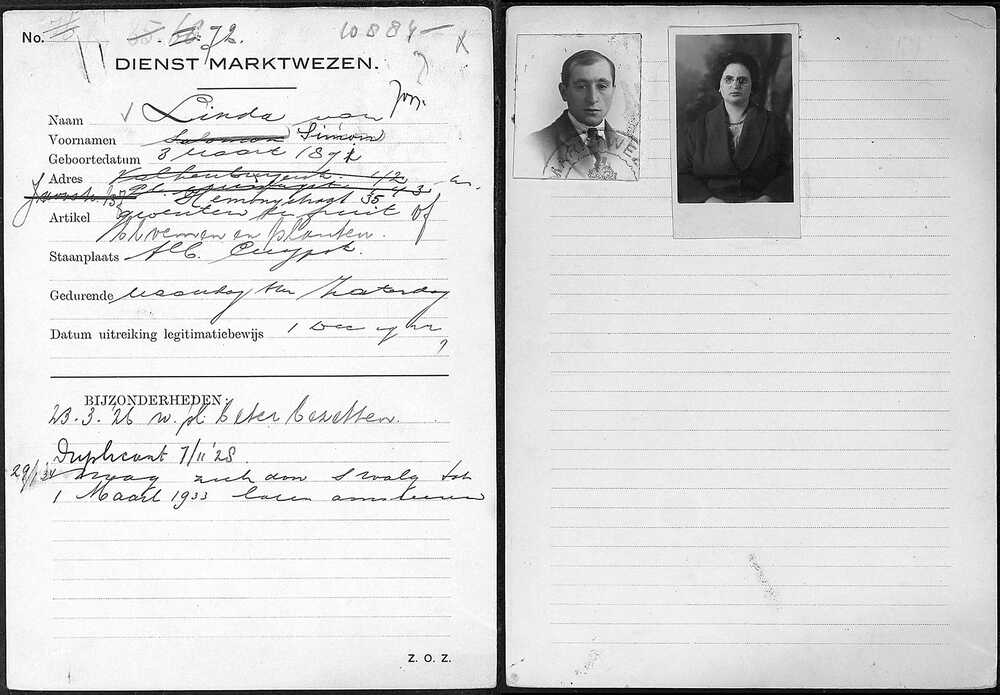 No. 72. 10884 — X
DIENST MARKTWEZEN.
Naam Linda van
Voornamen Salomon Simon
Geboortedatum 3 Maart 187
Adres Valkenburgerstr. 42
43
Hembonystraat 35
Artikel groenten en fruit of
bloemen en planten.
Staanplaats Alb. Cuypstr.
Gedurende Maandag t/m Zaterdag
Datum uitreiking legitimatiebewijs 1 Dec
?
BIJZONDERHEDEN.
23.3.'26 w. pl. beter bezetten.
Duplicaat 7/11 '28.
29/1 mag zich door S Walg tot
1 Maart 1933 laten assisteeren
Z. O. Z.
MARKTWEZEN